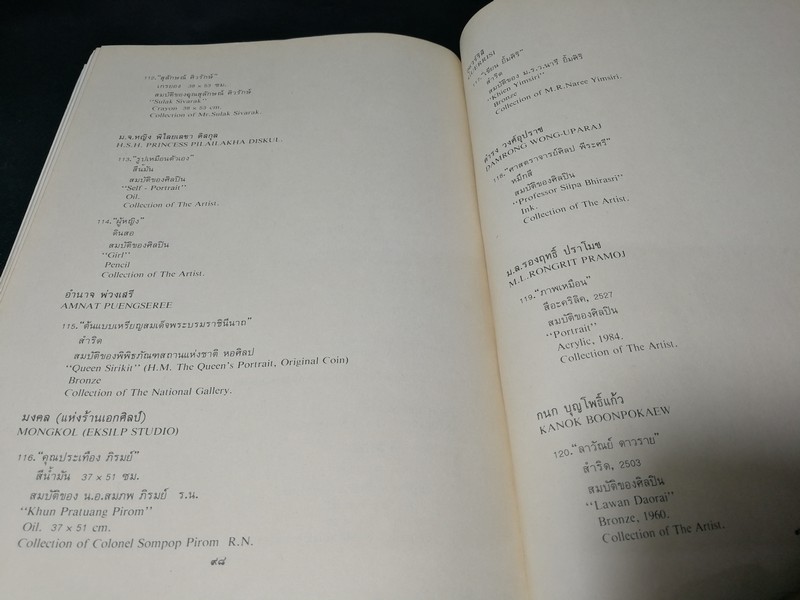 112."สุลักษณ์ ศิวรักษ์"
เกรยอง 38 x 53 ซม.
สมบัติของคุณสุลักษณ์ ศิวรักษ์
"Sulak Sivarak"
Crayon 38 x 53 cm.
Collection of Mr.Sulak Sivarak.
ม.จ.หญิง พิไลยเลขา ดิสกุล
H.S.H. PRINCESS PILAILAKHA DISKUL.
113."รูปเหมือนตัวเอง"
สีน้ำมัน
สมบัติของศิลปิน
"Self - Portrait"
Oil.
Collection of The Artist.
114."ผู้หญิง"
ดินสอ
สมบัติของศิลปิน
"Girl"
Pencil
Collection of The Artist.
อำนาจ พ่วงเสรี
AMNAT PUENGSEREE
115."ต้นแบบเหรียญสมเด็จพระบรมราชินีนาถ"
สำริด
สมบัติของพิพิธภัณฑสถานแห่งชาติ หอศิลป
"Queen Sirikit" (H.M. The Queen's Portrait, Original Coin)
Bronze
Collection of The National Gallery.
มงคล (แห่งร้านเอกศิลป์)
MONGKOL (EKSILP STUDIO)
116."คุณประเทือง ภิรมย์"
สีน้ำมัน 37 x 51 ซม.
สมบัติของ น.อ.สมภพ ภิรมย์ ร.น.
"Khun Pratuang Pirom"
Oil. 37 x 51 cm.
Collection of Colonel Sompop Pirom R.N.
๙๘
"เขียน ยิ้มศิริ"
สำริด
สมบัติของ ม.ร.ว.นารี ยิ้มศิริ
"Khien Yimsiri"
Bronze
Collection of M.R.Naree Yimsiri.
ดำรง วงศ์อุปราช
DAMRONG WONG-UPARAJ
118."ศาสตราจารย์ศิลป พีระศรี"
หมึกสี
สมบัติของศิลปิน
"Professor Silpa Bhirasri"
Ink.
Collection of The Artist.
ม.ล.รองฤทธิ์ ปราโมช
M.L.RONGRIT PRAMOJ
119."ภาพเหมือน"
สีอะคริลิค, 2527
สมบัติของศิลปิน
"Portrait"
Acrylic, 1984.
Collection of The Artist.
กนก บุญโพธิ์แก้ว
KANOK BOONPOKAEW
120."ลาวัณย์ ดาวราย"
สำริด, 2503
สมบัติของศิลปิน
"Lawan Daorai"
Bronze, 1960.
Collection of The Artist.